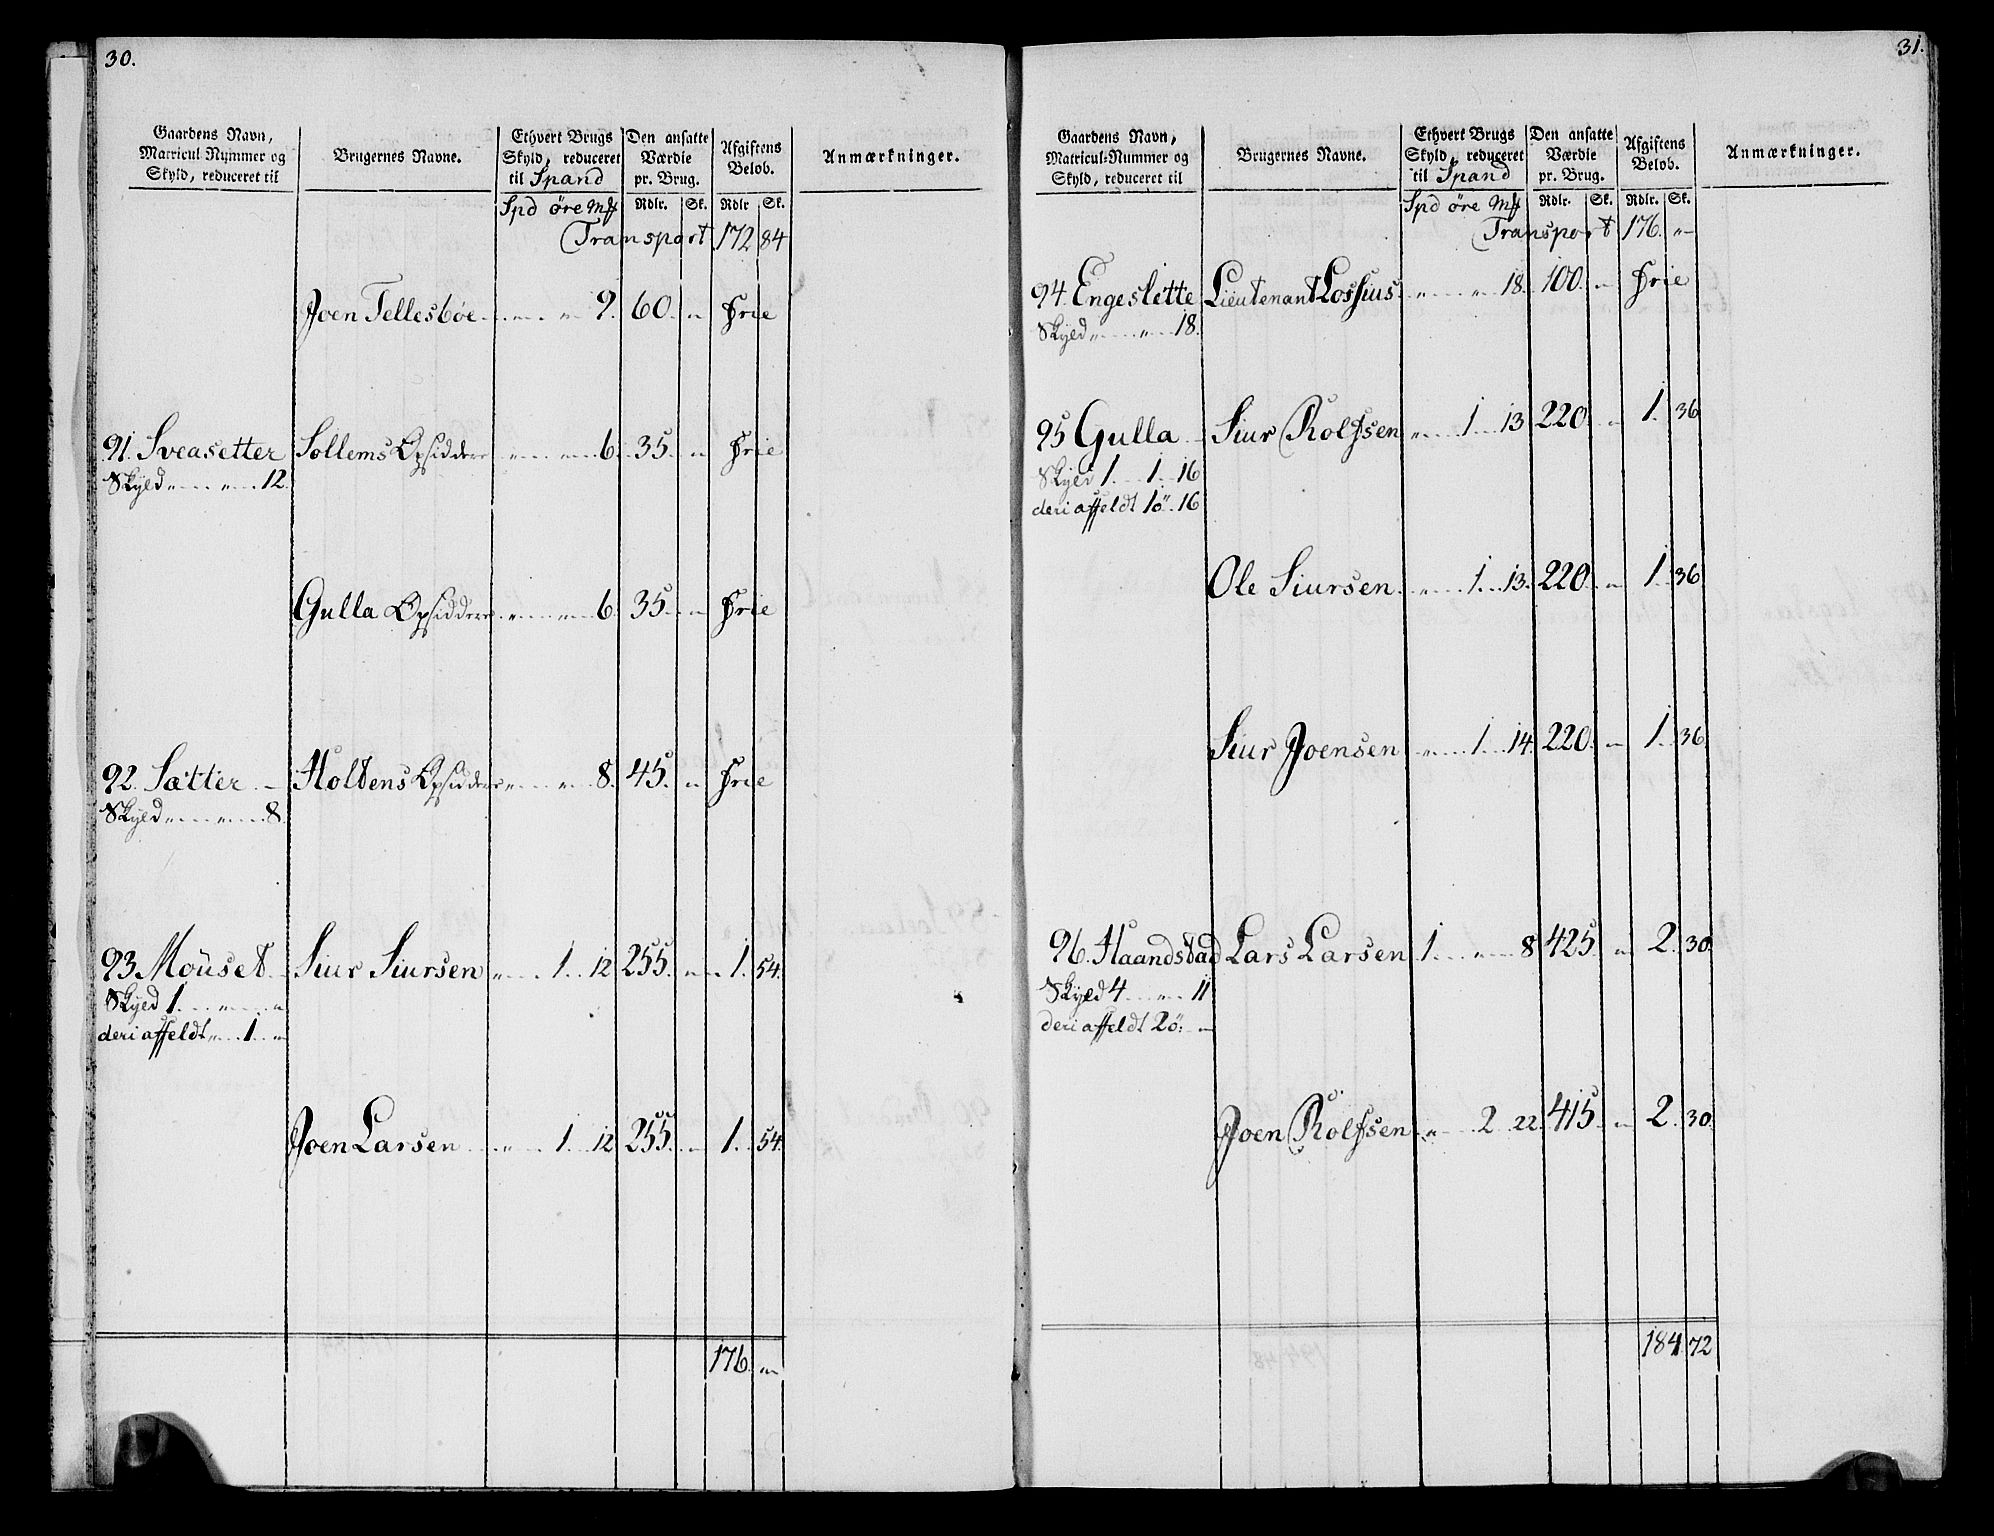 30.
Gaardens Navn, Matricul-Nummer og Skyld, reduceret til
Brugernes Navne.
Ethvert Brugs Skyld, reduceret til Spand
Den ansatte Værdie pr. Brug.
Afgiftens Belob.
Anmærkninger.
Spd øre Mk Rdlr. Sk. Rdlr Sk.
Transport 172 84
Joen Tellesbøe 9. 60. " Frie
91. Sveasetter Sollems Opsiddere 6. 35. " Frie
Skyld 12.
Gulla Opsiddere 6. 35. " Frie
92. Sætter Holtens Opsiddere 8. 45. " Frie
Skyld 8.
93 Mouset Siur Siursen " 1. 12 255. " 1. 54.
Skyld 1. "
deri affeldt " 1. "
Joen Larsen " 1. 12 255. " 1. 54.
176. "
31.
Gaardens Navn, Matricul-Nummer og Skyld, reduceret til
Brugernes Navne.
Ethvert Brugs Skyld, reduceret til Spand
Den ansatte Værdie pr. Brug.
Afgiftens Belob.
Anmærkninger.
Spd øre Mk Rdlr. Sk. Rdlr. Sk.
Transport 176. "
94. Engeslette Lieutenant Lossius " 18. 100. " Frie
Skyld " 18.
95 Gulla Siur Rolfsen " 1. 13 220. " 1. 36
Skyld 1. 1. 16
deri affeldt 1ö. 16
Ole Siursen " 1. 13. 220. " 1. 36
Siur Joensen " 1. 14 220. " 1. 36
96. Haandstad Lars Larsen 1. " 8 425 " 2. 30
Skyld 4 " 11
deri affeldt 2ö: "
Joen Rolfsen " 2 22. 415. " 2. 30.
184 72